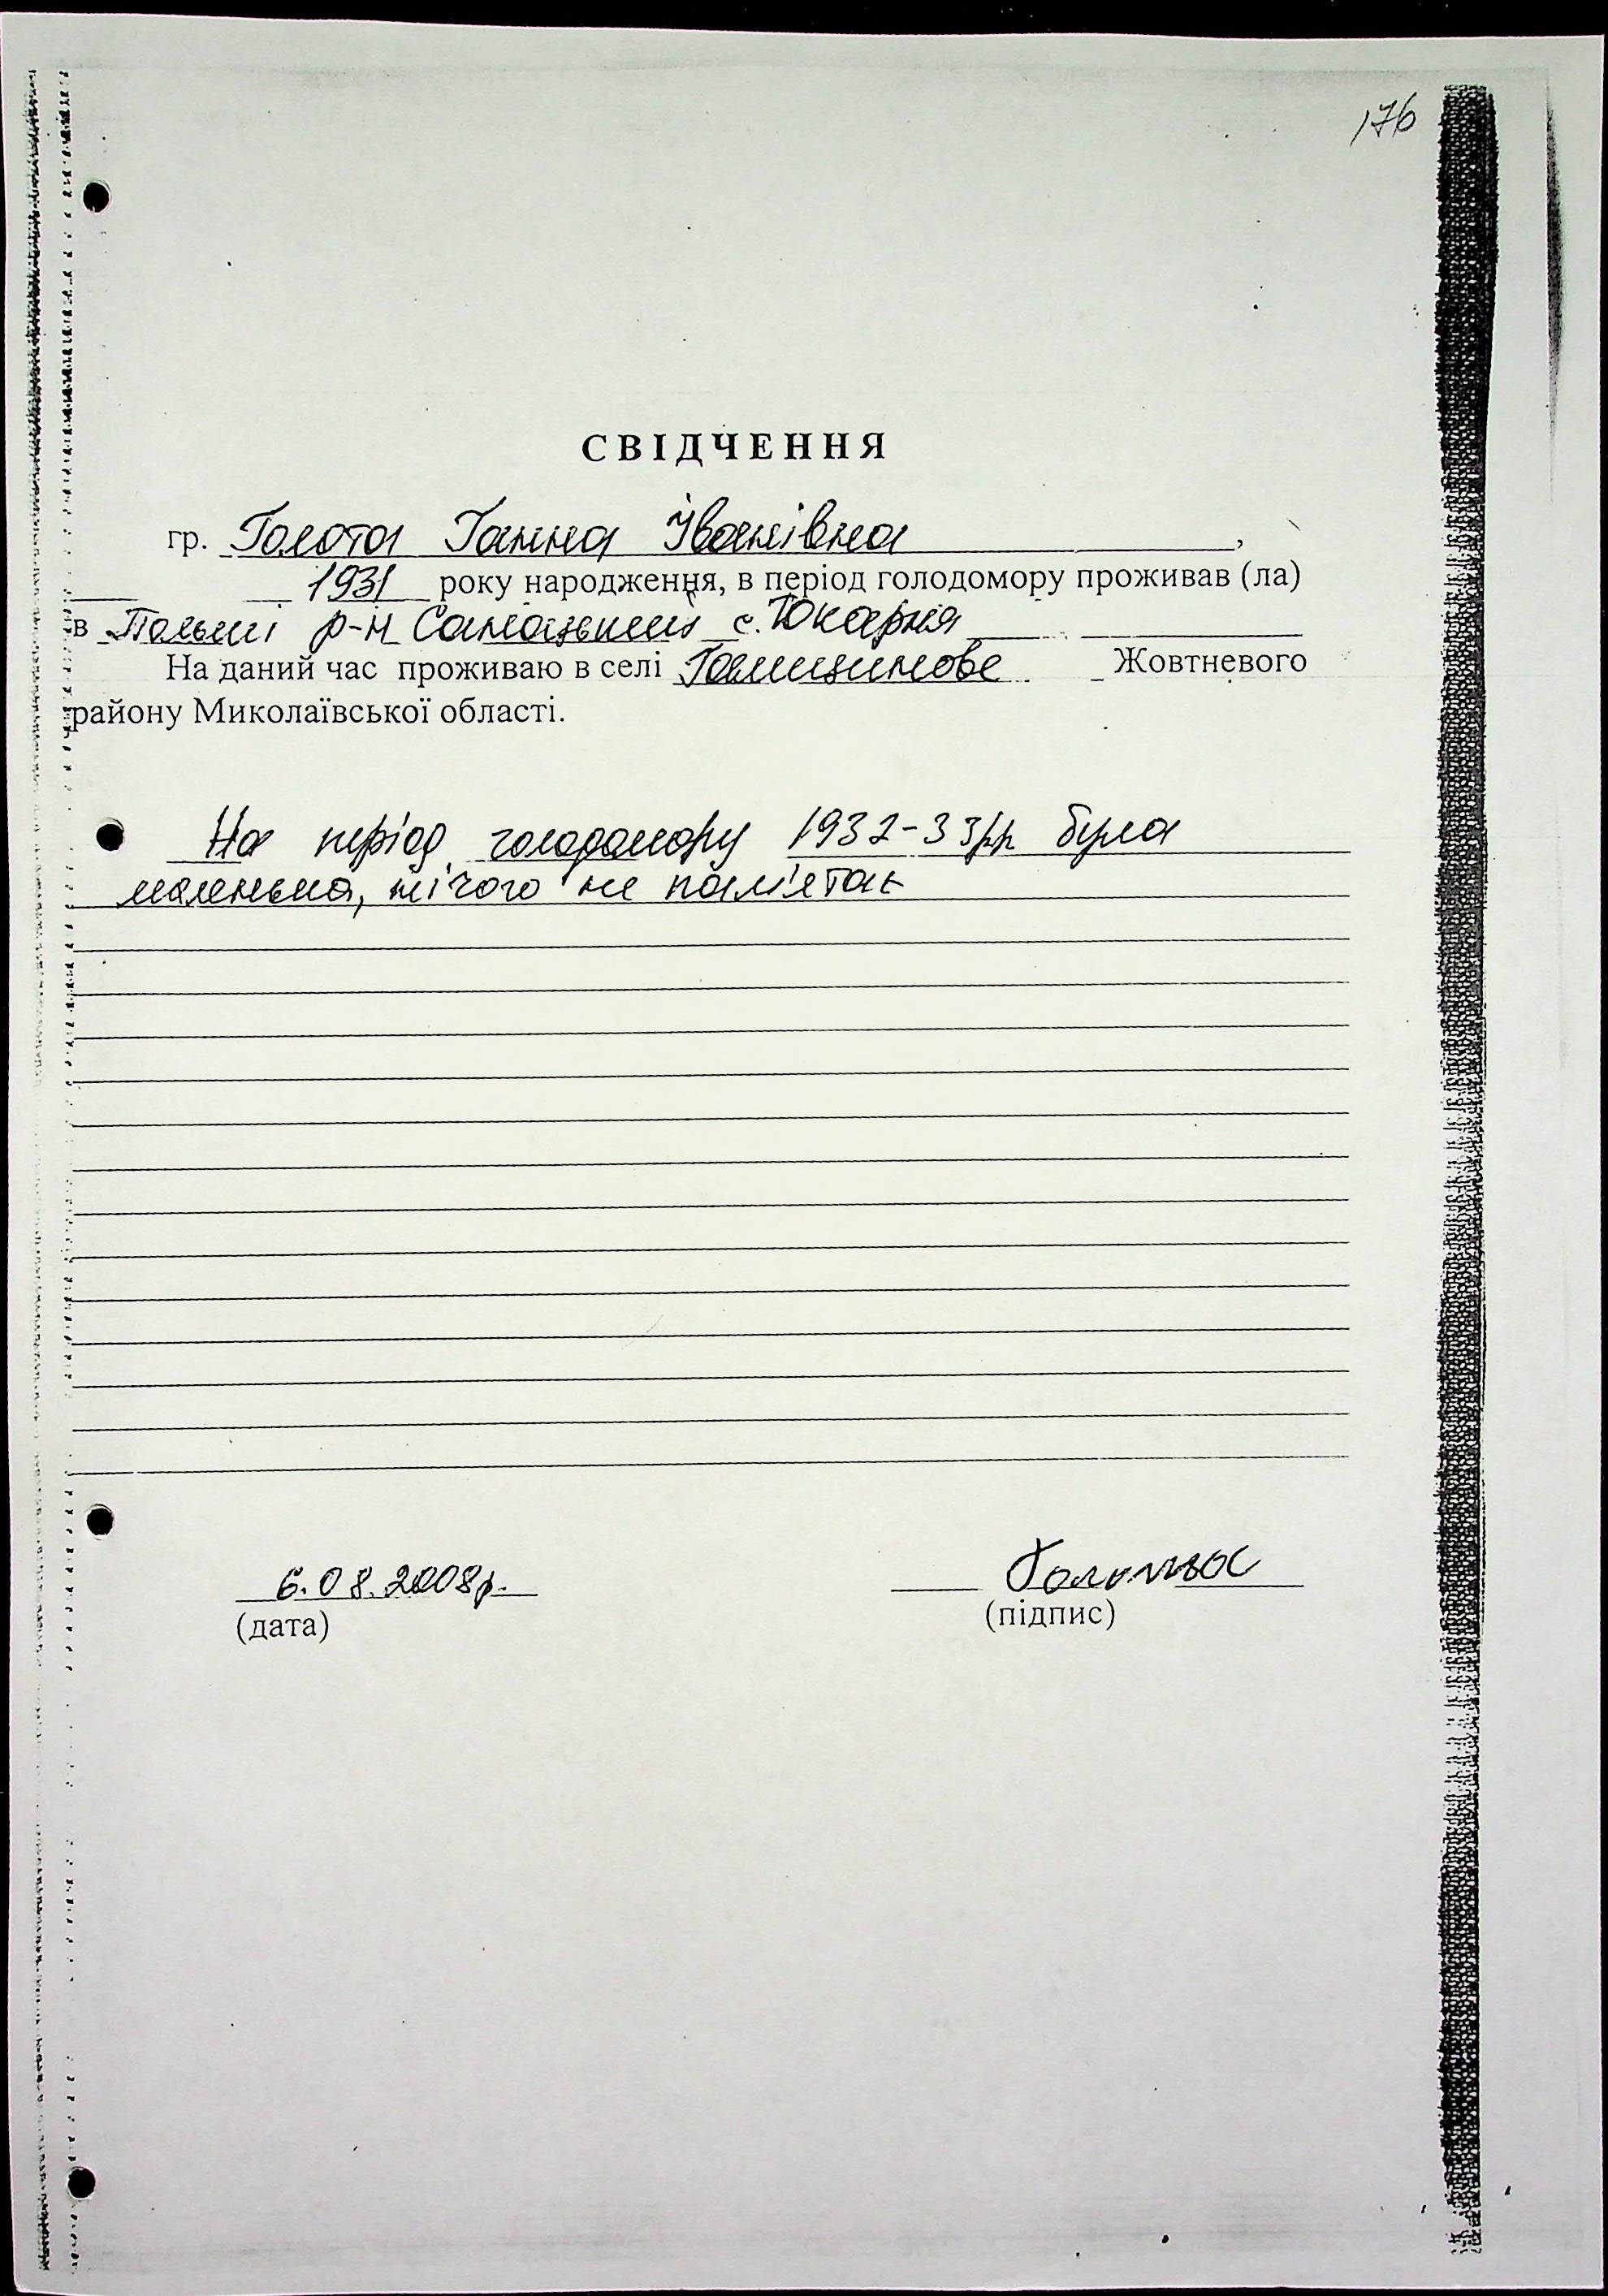 176
СВІДЧЕННЯ
гр. Голота Ганна Іванівна,
1931 року народження, в період голодомору проживав (ла)
в Польші р-н Саноцький с. Токарня
На даний час проживаю в селі Галицинове Жовтневого
району Миколаївської області.
На період голодомору 1932-33рр була
маленька, нічого не пам'ятає
6.08.2008р. Голота
(дата) (підпис)